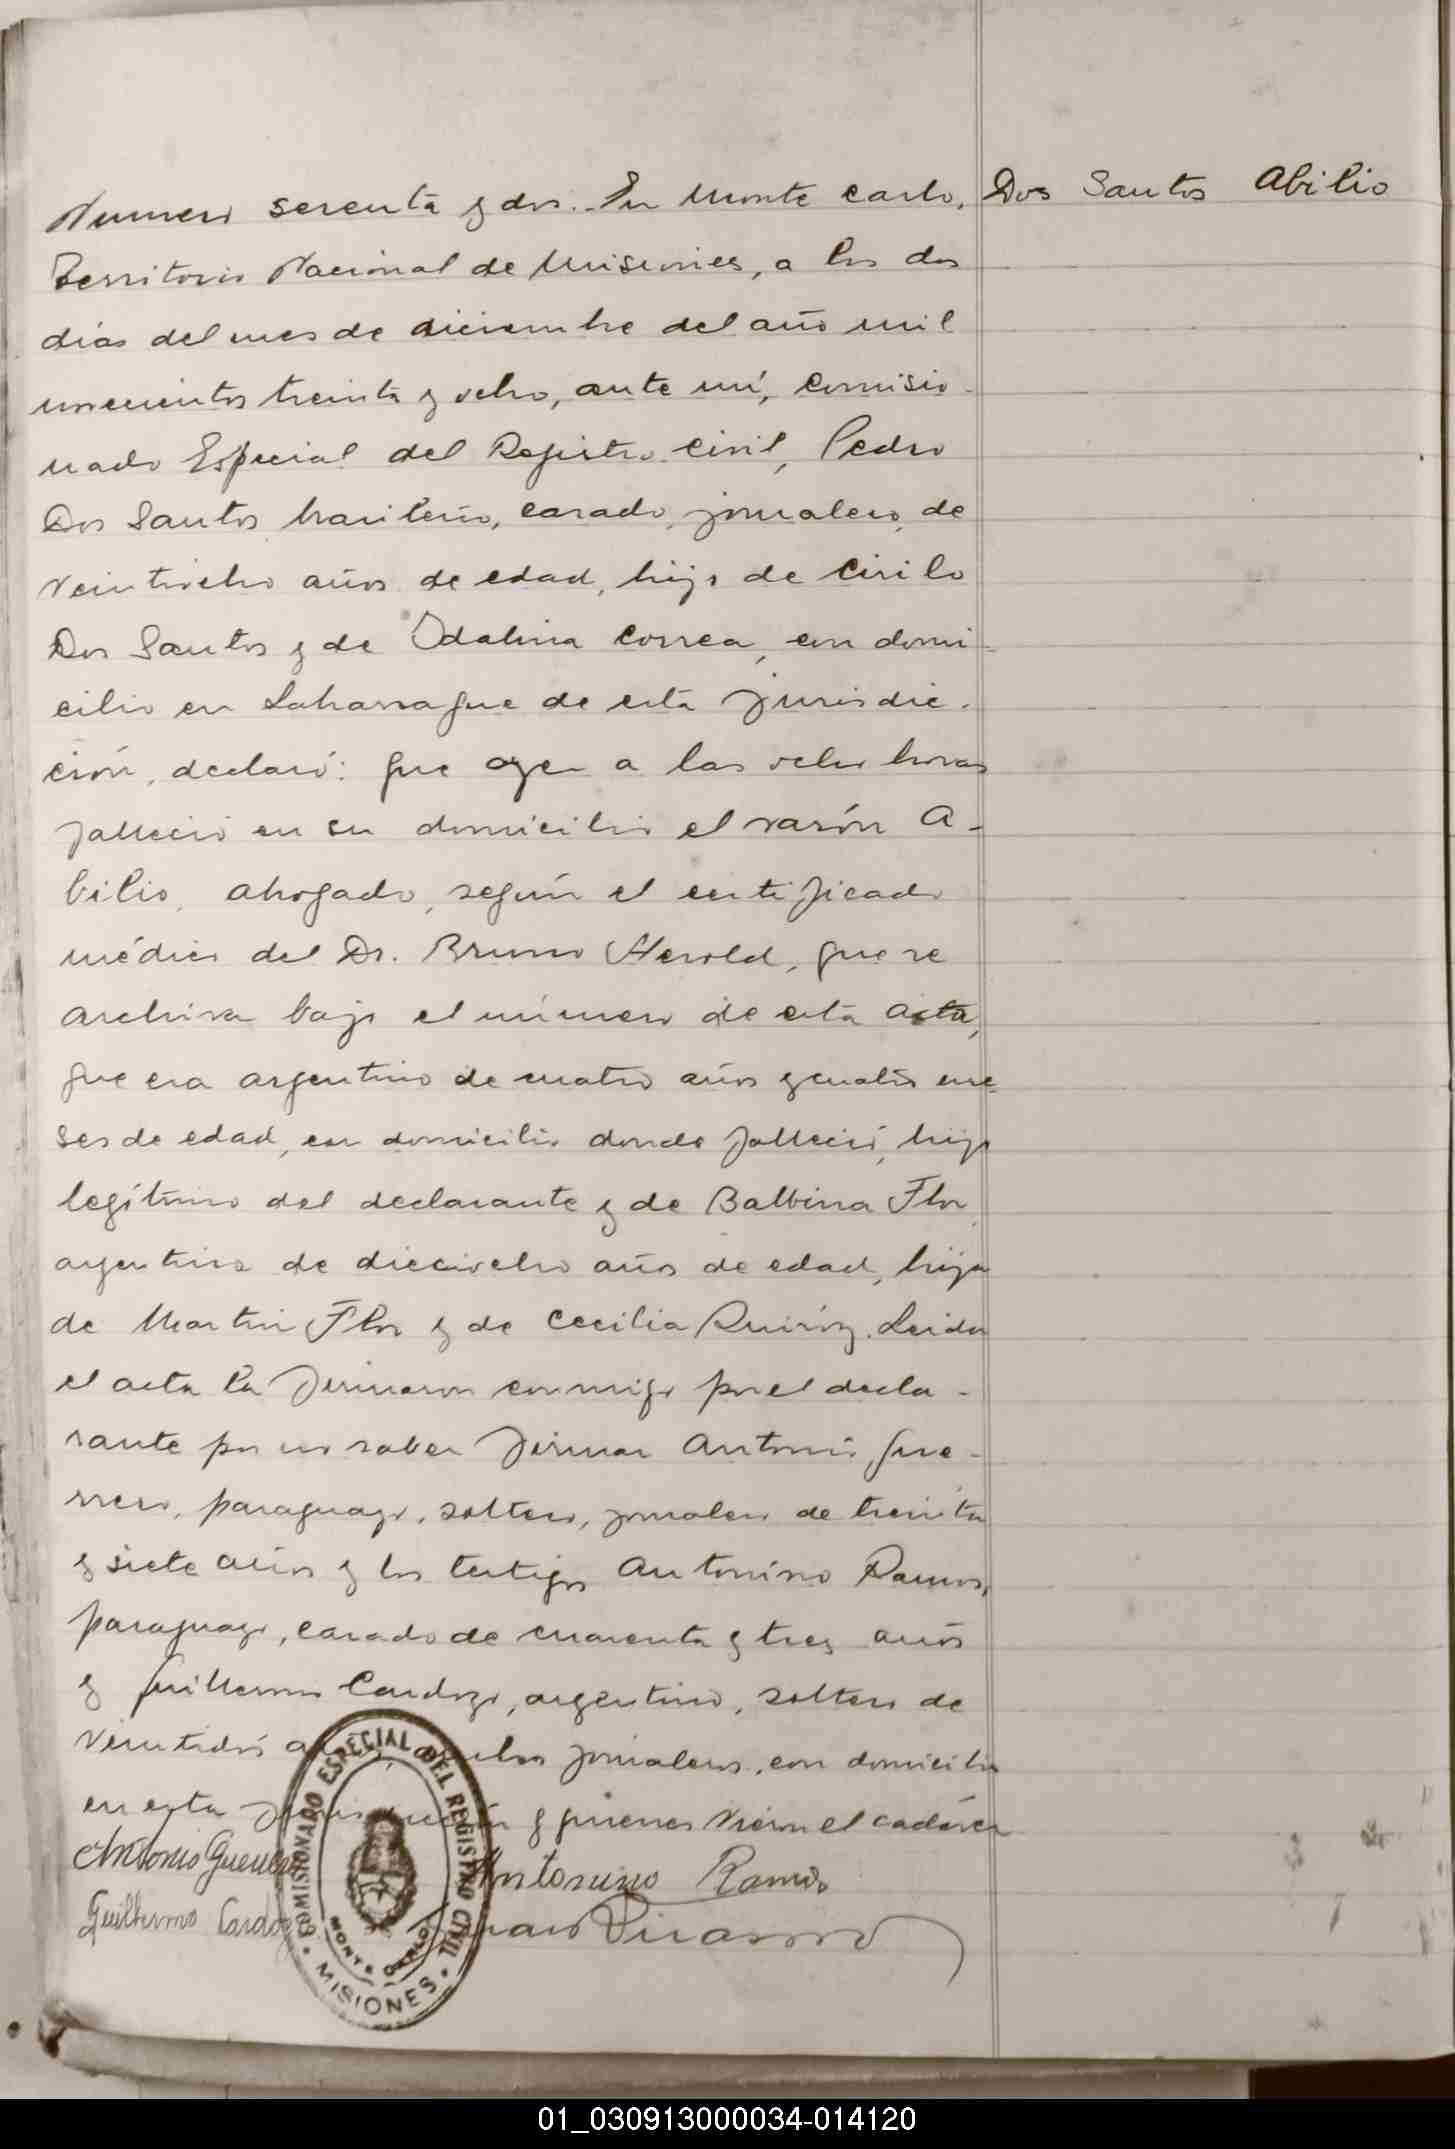 Numero sesenta y dos. En Monte Carlo, Dos Santos Abilio
Territorio Nacional de Misiones, a los dos
días del mes de diciembre del año mil
novecientos treinta y ocho, ante mí, Comisio-
nado Especial del Registro Civil, Pedro
Dos Santos, brasileño, casado, jornalero, de
veintiocho años de edad, hijo de Cirilo
Dos Santos y de Odalina Correa, con domi-
cilio en Laharrague de esta jurisdic-
ción, declaró: que ayer a las ocho horas
falleció en su domicilio el varón A-
bilio, ahogado, según el certificado
médico del Dr. Bruno Herold, que se
archiva bajo el número de esta acta,
que era argentino de cuatro años y cuatro me-
ses de edad, con domicilio donde falleció, hijo
legítimo del declarante y de Balbina Flor,
argentina de dieciocho años de edad, hija
de Martin Flor y de Cecilia Quiróz. Leida
el acta la firmaron conmigo por el decla-
rante por no saber firmar Antonio Gue-
rrero, paraguayo, soltero, jornalero de treinta
y siete años y los testigos Antonino Ramos,
paraguayo, casado de cuarenta y tres años
y Guillermo Cardozo, argentino, soltero de
veintidós años, jornaleros, con domicilio
en esta jurisdicción y quienes vieron el cadáver
Antonio Guerrero Antonino Ramos
Guillermo Cardozo
COMISIONADO ESPECIAL DEL REGISTRO CIVIL
MONTE CARLO
MISIONES
01_030913000034-014120